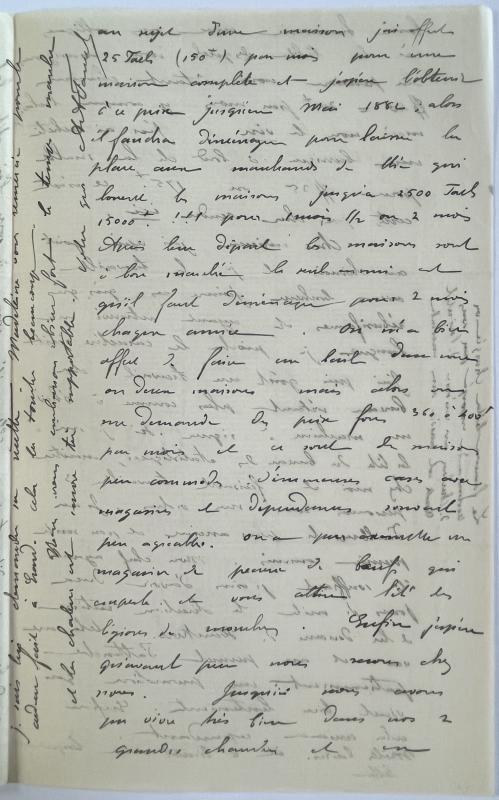 au sujet d'une maison j'ai offert
25 Taels (150f) par mois pour une
maison complète et j'espère l'obtenir
à ce prix jusqu'en Mai 1882, alors
il faudra déménager pour laisser la
place aux marchands de thé qui
louent les maisons jusqu'à 2500 Taels
15000f !!! pour 1 mois 1/2 ou 2 mois
Après leur départ les maisons sont
à bon marché le seul ennui est
qu'il faut déménager pour 2 mois
chaque année. On m'a bien
offert de faire un bail d'une
ou deux maisons mais alors on
me demande des prix fous 360 à 400f
par mois et ce sont des maisons
peu commodes d'immenses cases avec
magasins et dépendances souvent
peu agréables. On a par exemple un
magasin de peaux de bœufs qui
empeste et vous attire l'été des
légions de mouches. Enfin j'espère
qu'avant peu nous serons chez
nous. Jusqu'ici nous avons
pu vivre très bien dans nos 2
grandes chambres et
demander sa recette Madeleine vous remercie pour le
cela la touche beaucoup. le temps manque
Nous vous embrassons bien fort
et la chaleur est encore très supportable.